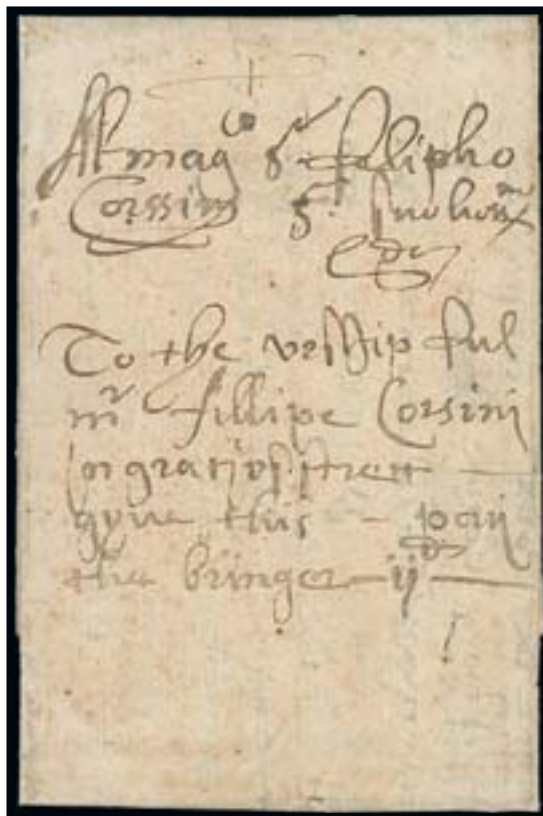 Al mag^co S^r Filipho
Corssini S^r suo hon^mo
To the vorshipful
m^r fillipe Corsini
in gratius street
gyue this – paij
the bringer – ij^d